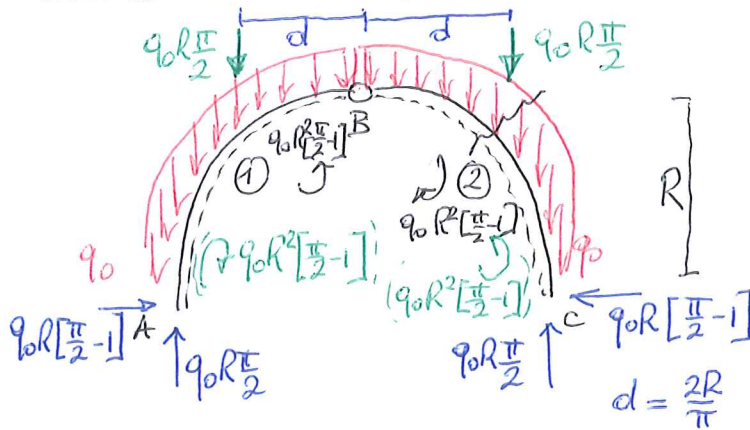 d d
q₀Rπ/2 q₀Rπ/2
B
q₀R²[π/2-1]
① ②
R
q₀R²[π/2-1]
q₀ (q₀R²[π/2-1]) q₀
(q₀R²[π/2-1])
q₀R[π/2-1] A C q₀R[π/2-1]
q₀Rπ/2 q₀Rπ/2
d = 2R/π